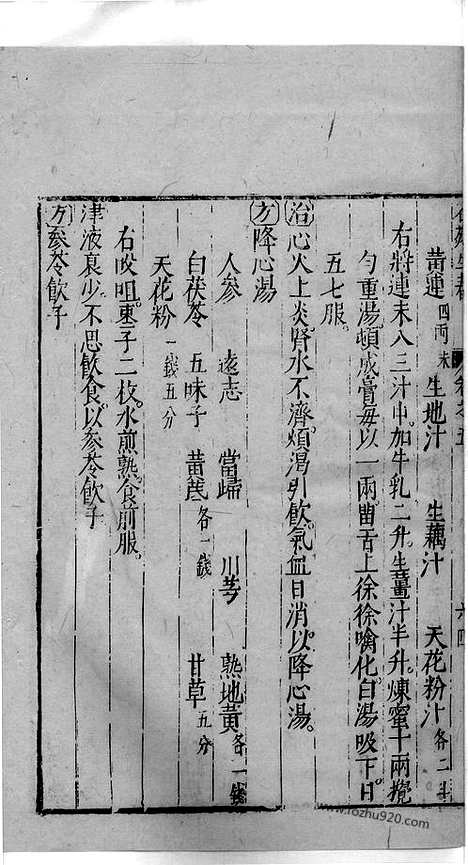 黃連四兩末 生地汁 生藕汁 天花粉汁各二升
右將連末入三汁中加牛乳二升生薑汁半升煉蜜十兩攪
勻重湯頓成膏每以一兩留舌上徐徐噙化白湯吸下日
五七服
治心火上炎腎水不濟煩渴引飲氣血日消以降心湯
方降心湯
人參 遠志 當歸 川芎 熟地黃各一錢
白茯苓 五味子 黃芪各一錢 甘草五分
天花粉一錢五分
右㕮咀棗子二枚水煎熟食前服
津液衰少不思飲食以參苓飲子
方參苓飲子
www.lozhu920.com